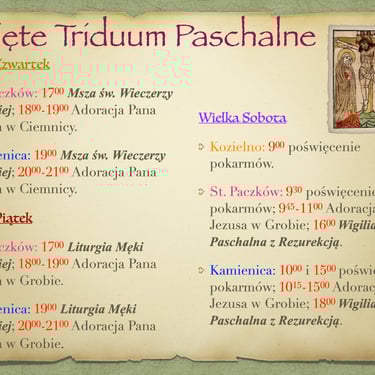 ęte Triduum Paschalne
zwartek
aczków: 17⁰⁰ Msza św. Wieczerzy
iej; 18⁰⁰-19⁰⁰ Adoracja Pana
a w Ciemnicy.
enica: 19⁰⁰ Msza św. Wieczerzy
iej; 20⁰⁰-21⁰⁰ Adoracja Pana
a w Ciemnicy.
Piątek
aczków: 17⁰⁰ Liturgia Męki
iej; 18⁰⁰-19⁰⁰ Adoracja Pana
a w Grobie.
enica: 19⁰⁰ Liturgia Męki
iej; 20⁰⁰-21⁰⁰ Adoracja Pana
a w Grobie.
Wielka Sobota
Kozielno: 9⁰⁰ poświęcenie
pokarmów.
St. Paczków: 9³⁰ poświęcenie
pokarmów; 9⁴⁵-11⁰⁰ Adoracja
Jezusa w Grobie; 16⁰⁰ Wigilia
Paschalna z Rezurekcją.
Kamienica: 10⁰⁰ i 15⁰⁰ poświę
pokarmów; 10¹⁵-15⁰⁰ Adoracja
Jezusa w Grobie; 18⁰⁰ Wigilia
Paschalna z Rezurekcją.